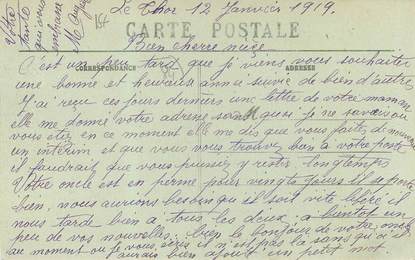 Le Thor 12 Janvier 1919.
CARTE POSTALE
CORRESPONDANCE
ADRESSE
Bien chere niece
C'est un peu tard que je viens vous souhaiter
une bonne et heureuse année suivie de bien d'autres
J'ai reçu ces jours derniers une lettre de votre maman
Elle me donne votre adresse sans quoi je ne savais où
vous étiez en ce moment elle me dis que vous faites de nouveau
un intérim et que vous vous trouvez bien à votre poste
il faudrait que vous puissiez y rester longtemps
Votre oncle est en perme pour vingt jours il se porte
bien, nous aurions besoin qu'il soit vite libéré il
nous tarde bien a tous les deux. a bientot un
peu de vos nouvelles. bien le bonjour de votre oncle
au moment où je vous écris il n'est pas là sans quoi il
aurais bien ajouté un petit mot
Votre
tante
qui vous
embrasse